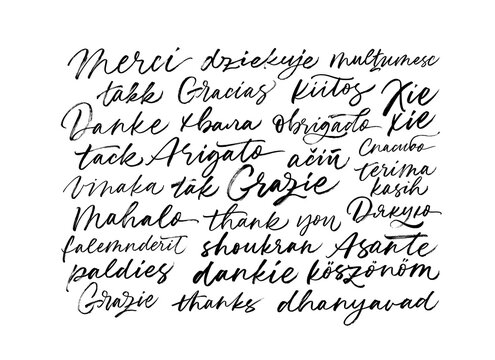 Merci dziekuje multumesc
takk Gracias kiitos Xie
Danke хвала obrigado xie
tack Arigato ačiū Спасибо
vinaka tak Grazie terima kasih
Mahalo thank you Дякую
falemnderit shoukran Asante
paldies dankie köszönöm
Grazie thanks dhanyavad